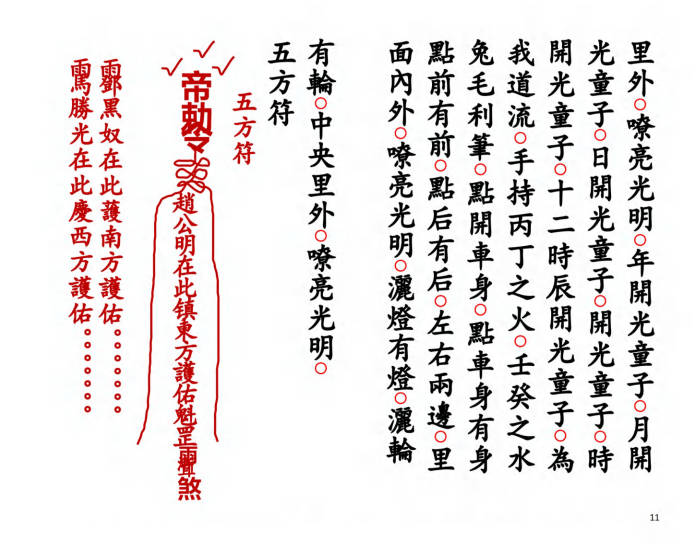 里外○嘹亮光明○年開光童子○月開
光童子○日開光童子○開光童子○時
開光童子○十二時辰開光童子○為
我道流○手持丙丁之火○壬癸之水
兔毛利筆○點開車身○點車身有身
點前有前○點后有后○左右兩邊○里
面內外○嘹亮光明○灑燈有燈○灑輪
有輪○中央里外○嘹亮光明○
五方符
五方符
帝勅令
趙公明在此镇東方護佑魁罡煞
黑奴在此護南方護佑。。。。。。。
勝光在此慶西方護佑。。。。。。。
11